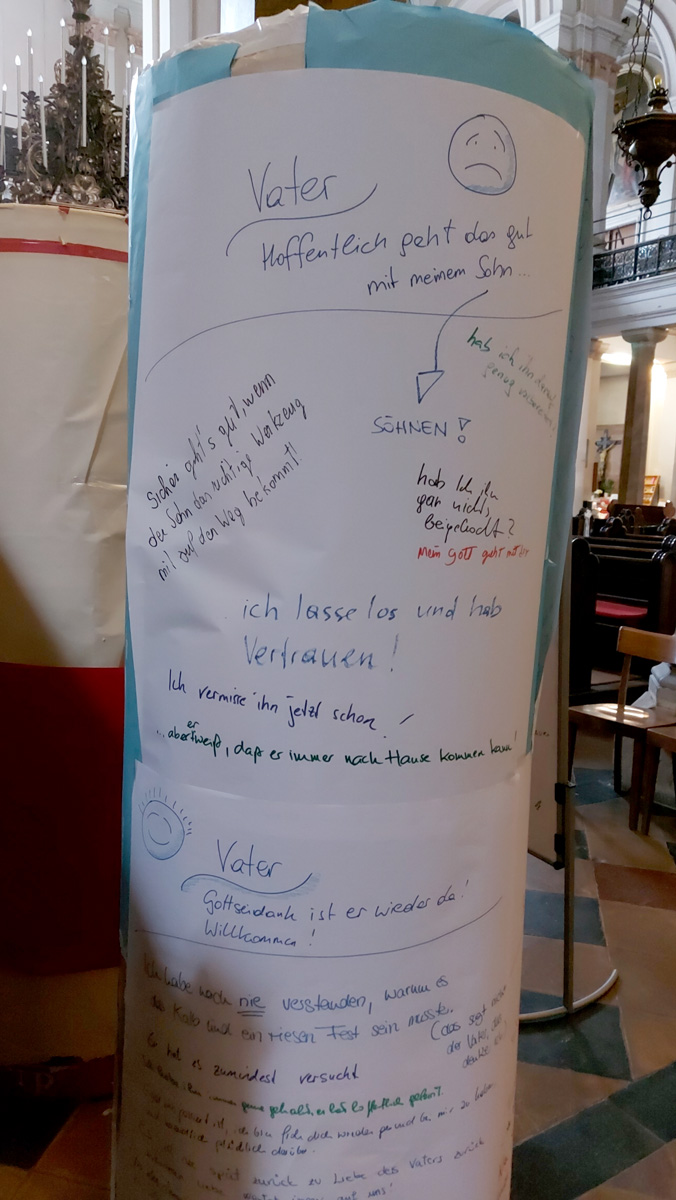 Vater
Hoffentlich geht das gut
mit meinem Sohn...
hab ich ihn darauf
genug vorbereitet?
SÖHNEN!
Sicher geht's gut, wenn
der Sohn das richtige Werkzeug
mit auf den Weg bekommt!
hab Ich ihn
gar nicht,
Beigebracht?
Mein Gott geht mit
ich lasse los und hab
Vertrauen!
Ich vermisse ihn jetzt schon!
...aber er weiß, daß er immer nach Hause kommen kann!
Vater
Gottseidank ist er wieder da!
Willkommen!
Ich habe noch nie verstanden, warum es
das Kalb und ein riesen Fest sein musste.
(das sagt nicht
der Vater, das
denke ich)
Er hat es zumindest versucht
gerne gehabt, er hat hoffentlich gelernt.
ich bin froh dich wieder gesund bei mir zu haben
zurück zu Liebe des Vaters zurück